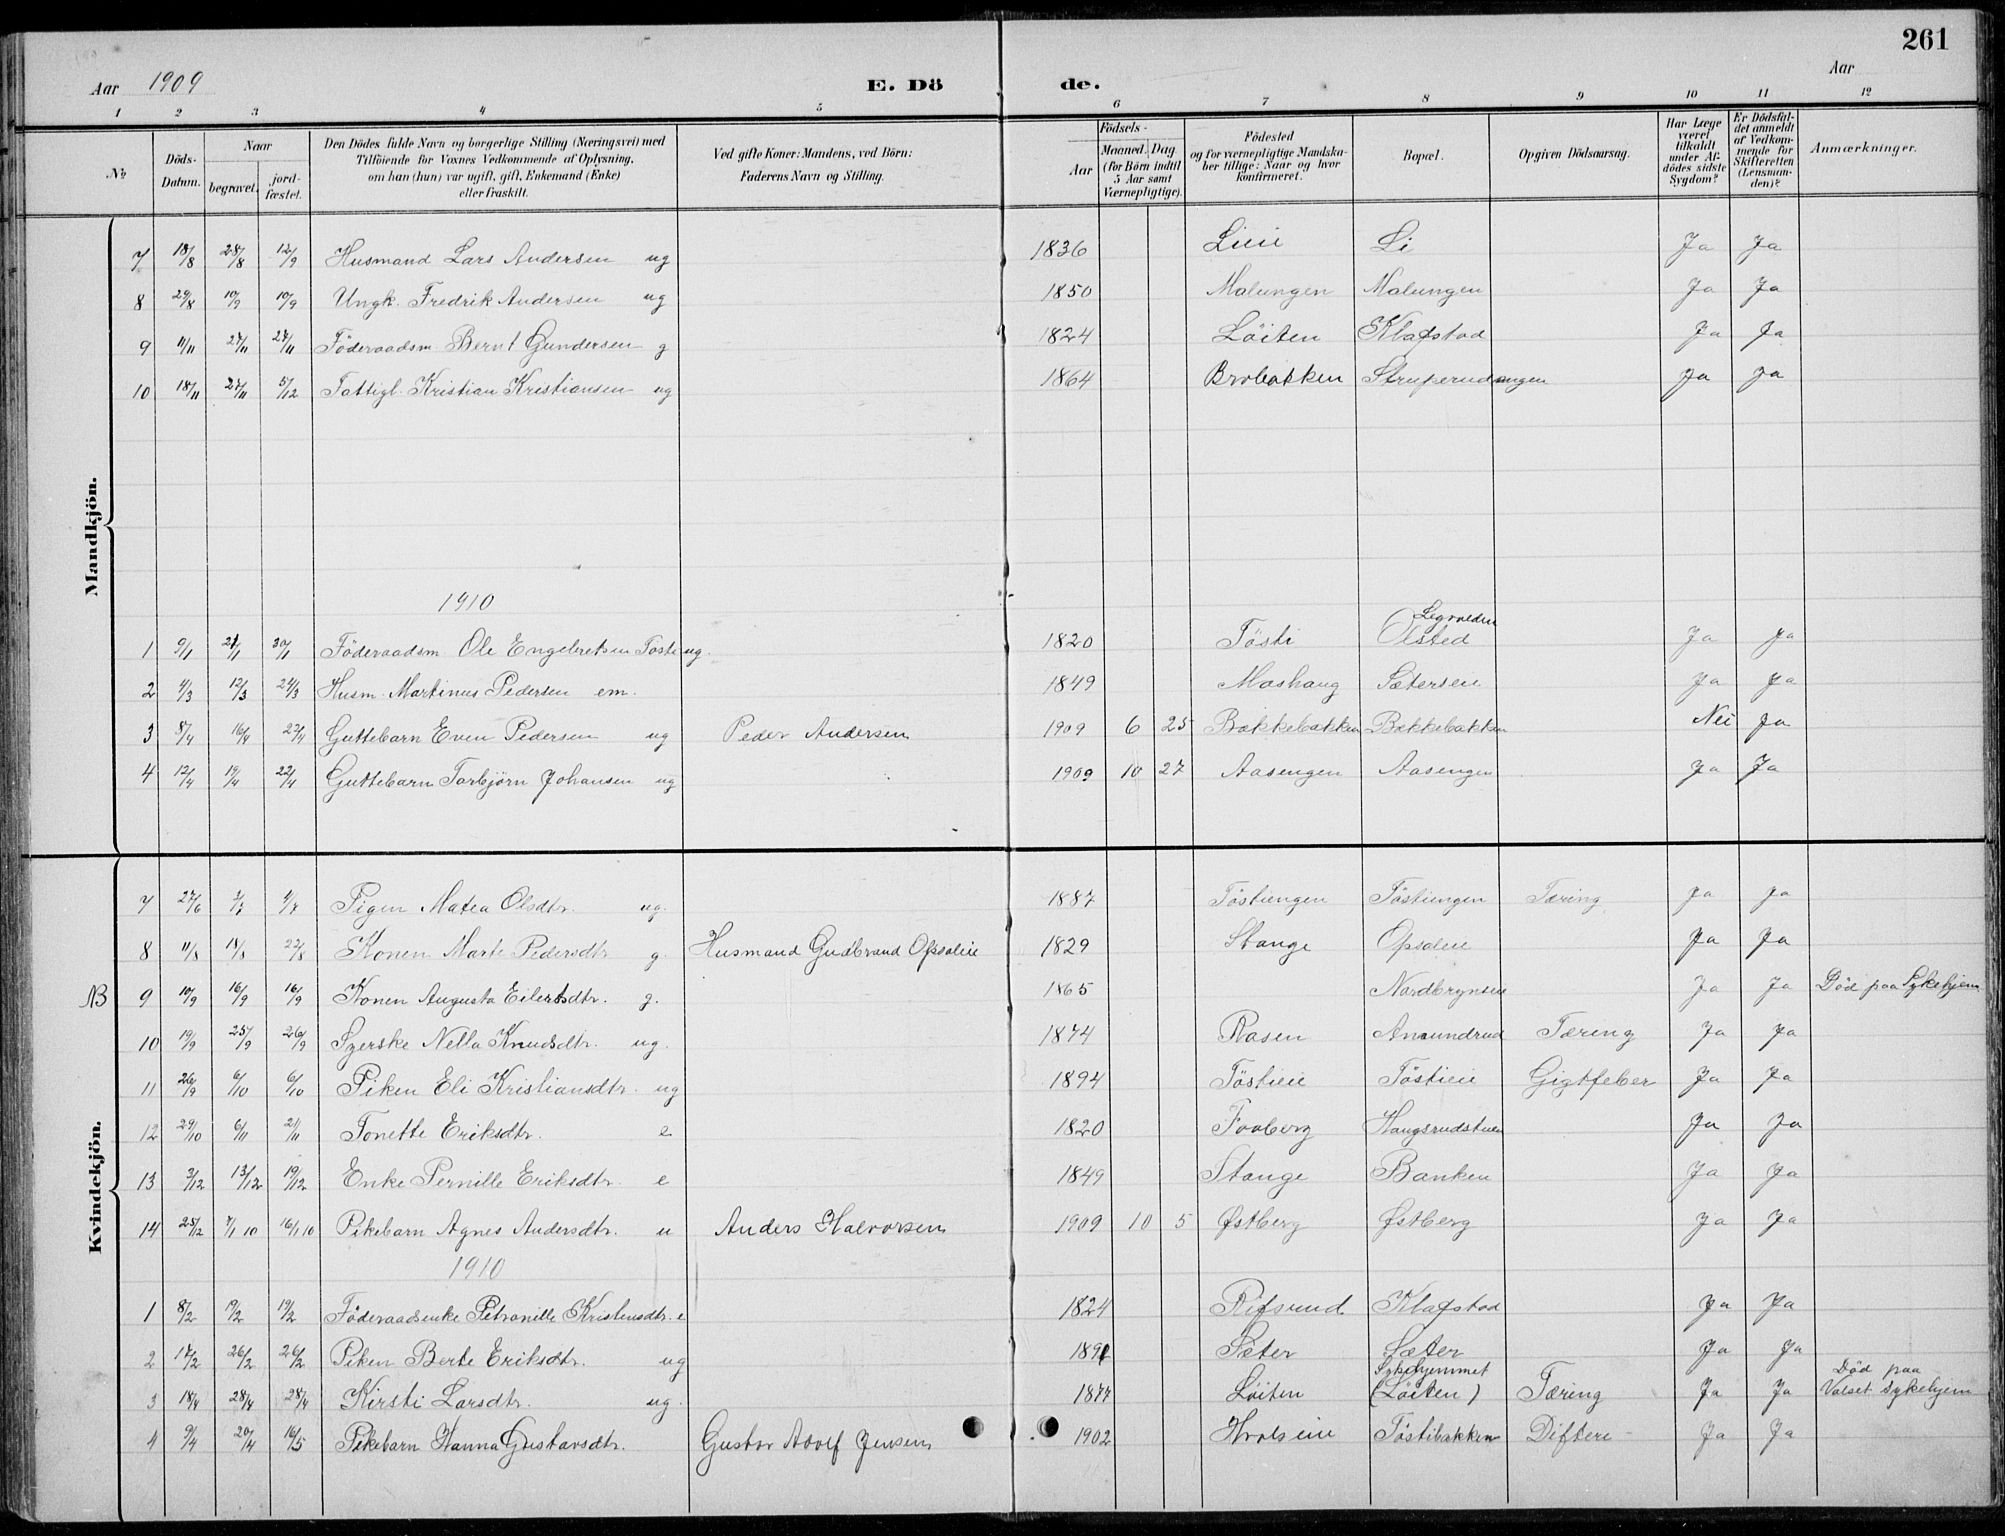 261
Aar 1909 E. Dö de. Aar
1 2 3 4 5 6 7 8 9 10 11 12
No. Döds-Datum. Naar begravet. jordfæstet. Den Dödes fulde Navn og borgerlige Stilling (Næringsvei) med Tilföiende for Voxnes Vedkommende af Oplysning, om han (hun) var ugift, gift, Enkemand (Enke) eller fraskilt. Ved gifte Koner: Mandens, ved Börn: Faderens Navn og Stilling. Födsels- Aar Maaned. Dag (for Börn indtil 5 Aar samt Værnepligtige). Födested og for værnepligtige Mandskaber tillige: Naar og hvor konfirmeret. Bopæl. Opgiven Dödsaarsag. Har Læge været tilkaldt under Afdödes sidste Sygdom? Er Dödsfaldet anmeldt af Vedkommende for Skifteretten (Lensmanden)? Anmærkninger.
Mandkjön.
7 18/8 28/8 12/9 Husmand Lars Andersen ug 1836 Lieie Li Ja Ja
8 29/8 10/9 10/9 Ungk. Fredrik Andersen ug 1850 Malungen Malungen Ja Ja
9 11/11 27/11 27/11 Föderaadsm Bernt Gundersen g 1824 Löiten Klafstad Ja Ja
10 18/11 27/11 5/12 Fattigl. Kristian Kristiansen ug 1864 Brobakken Struperudengen Ja Ja
1910
1 9/1 21/1 30/1 Föderaadsm Ole Engebretsen Tösti ug. 1820 Tösti Olsted Ja Ja
2 4/3 12/3 24/3 Husm. Martinus Pedersen em. 1849 Moshaug Sætersen Ja Ja
3 8/4 16/4 22/4 Guttebarn Even Pedersen ug Peder Andersen 1909 6 25 Bakkebakken Bakkebakken Nei Ja
4 12/4 19/4 22/4 Guttebarn Torbjörn Johansen ug 1909 10 27 Aasengen Aasengen Ja Ja
Kvindekjön.
7 27/6 3/7 4/7 Pigen Matea Olsdtr. ug. 1887 Töstiengen Töstiengen Tæring Ja Ja
8 11/8 18/8 22/8 Konen Marte Pedersdtr g. Husmand Gudbrand Opsaleie 1829 Stange Opsaleie Ja Ja
NB 9 10/9 16/9 16/9 Konen Augusta Eilertsdtr. g. 1865 Nordbryneie Ja Ja Död paa Sykehjem
10 19/9 25/9 26/9 Syerske Nella Knudsdtr. ug. 1874 Rasen Amundrud Tæring Ja Ja
11 26/9 6/10 6/10 Piken Eli Kristiansdtr. ug 1894 Töstieie Töstieie Gigtfeber Ja Ja
12 29/10 6/11 21/11 Tonette Eriksdtr. e 1820 Faaberg Haugsrudstuen Ja Ja
13 3/12 13/12 19/12 Enke Pernille Eriksdtr. e 1849 Stange Banken Ja Ja
14 25/12 7/1 10 16/1 10 Pikebarn Agnes Andersdtr. u Anders Halvorsen 1909 10 5 Østberg Østberg Ja Ja
1910
1 8/2 19/2 19/2 Föderaadsenke Petronille Kristensdtr. e 1824 Rifsrud Klafstad Ja Ja
2 17/2 26/2 26/2 Piken Berte Eriksdtr. ug 1891 Sæter Sæter Ja Ja
3 18/4 28/4 28/4 Kirsti Larsdtr. ug. 1877 Löiten Sykehjemmet (Löiten) Tæring Ja Ja Död paa Valset sykehjem
4 9/4 20/4 16/5 Pikebarn Hanna Gustavsdtr. Gustav Adolf Jensen 1902 Töstibakken Difteri Ja Ja